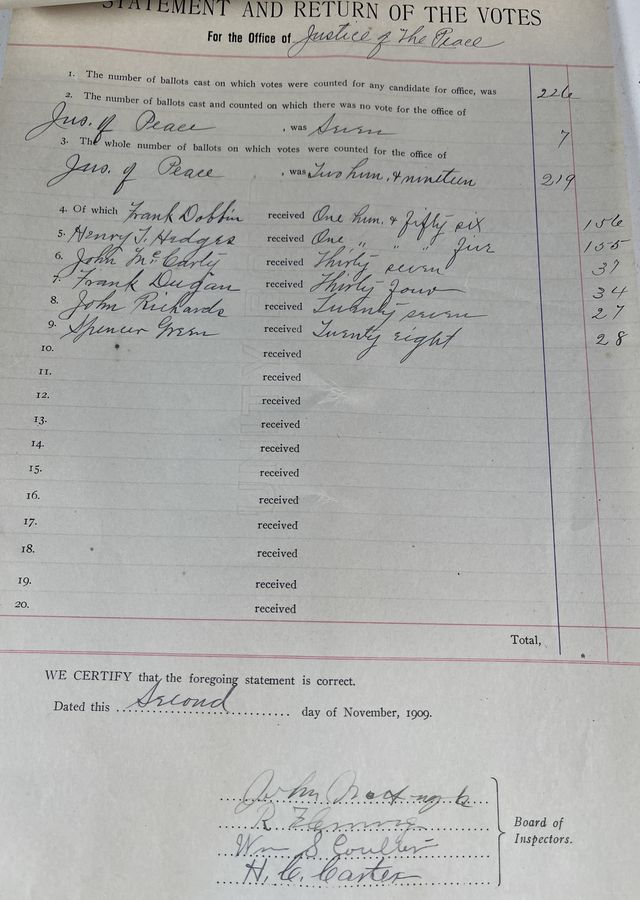 STATEMENT AND RETURN OF THE VOTES
For the Office of Justice of The Peace
1. The number of ballots cast on which votes were counted for any candidate for office, was 226
2. The number of ballots cast and counted on which there was no vote for the office of
Jus. of Peace, was Seven 7
3. The whole number of ballots on which votes were counted for the office of
Jus. of Peace, was Two hun. & nineteen 219
4. Of which Frank Dobbin received One hun. & fifty six 156
5. Henry T. Hedges received One " " " five 155
6. John McCarty received Thirty seven 37
7. Frank Dugan received Thirty four 34
8. John Richards received Twenty seven 27
9. Spencer Green received Twenty eight 28
10. received
11. received
12. received
13. received
14. received
15. received
16. received
17. received
18. received
19. received
20. received
Total,
WE CERTIFY that the foregoing statement is correct.
Dated this Second day of November, 1909.
John
R Fleming
Wm S Coulter
H. C. Carter
Board of
Inspectors.